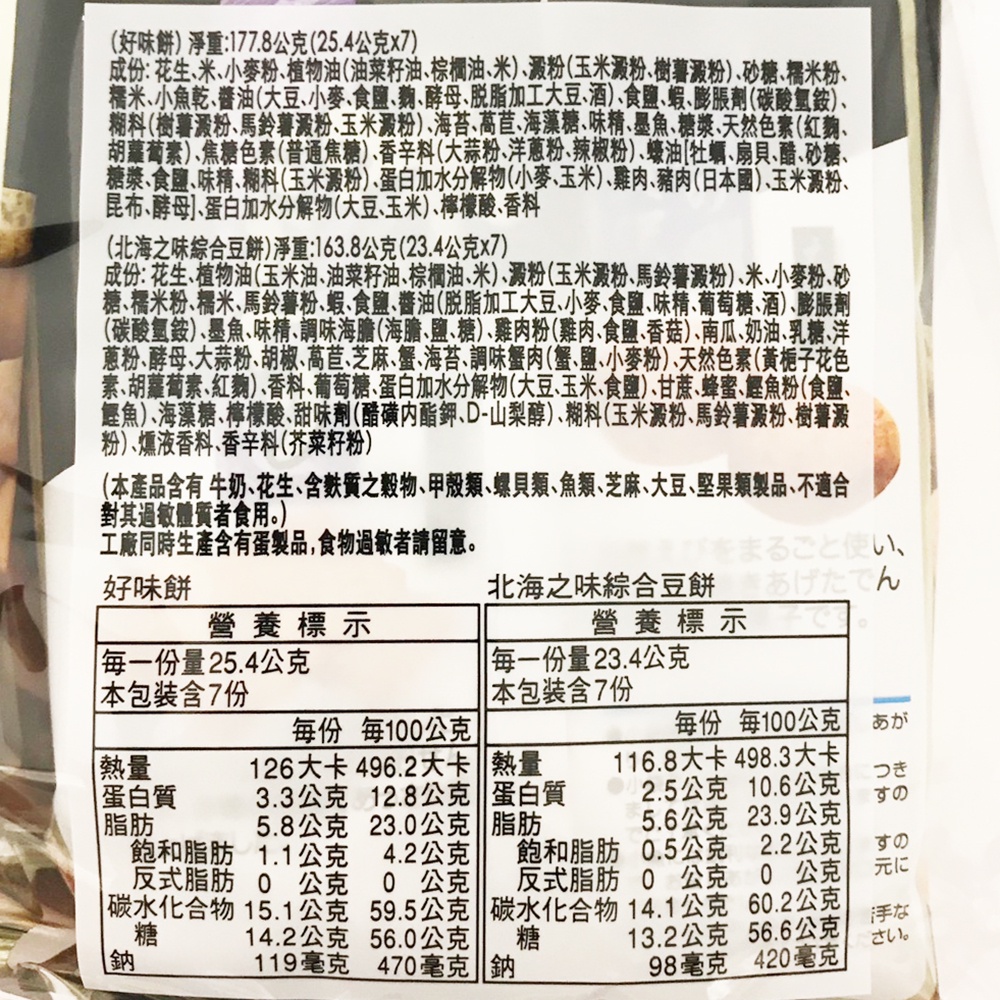 (好味餅) 淨重:177.8公克(25.4公克x7)
成份: 花生、米、小麥粉、植物油(油菜籽油、棕櫚油、米)、澱粉(玉米澱粉、樹薯澱粉)、砂糖、糯米粉、
糯米、小魚乾、醬油(大豆、小麥、食鹽、麴、酵母、脫脂加工大豆、酒)、食鹽、蝦、膨脹劑(碳酸氫銨)、
糊料(樹薯澱粉、馬鈴薯澱粉、玉米澱粉)、海苔、萵苣、海藻糖、味精、墨魚、糖漿、天然色素(紅麴、
胡蘿蔔素)、焦糖色素(普通焦糖)、香辛料(大蒜粉、洋蔥粉、辣椒粉)、蠔油[牡蠣、扇貝、醋、砂糖、
糖漿、食鹽、味精、糊料(玉米澱粉)、蛋白加水分解物(小麥、玉米)、雞肉、豬肉(日本國)、玉米澱粉、
昆布、酵母]、蛋白加水分解物(大豆、玉米)、檸檬酸、香料
(北海之味綜合豆餅)淨重:163.8公克(23.4公克x7)
成份: 花生、植物油(玉米油、油菜籽油、棕櫚油、米)、澱粉(玉米澱粉、馬鈴薯澱粉)、米、小麥粉、砂
糖、糯米粉、糯米、馬鈴薯粉、蝦、食鹽、醬油(脫脂加工大豆、小麥、食鹽、味精、葡萄糖、酒)、膨脹劑
(碳酸氫銨)、墨魚、味精、調味海膽(海膽、鹽、糖)、雞肉粉(雞肉、食鹽、香菇)、南瓜、奶油、乳糖、洋
蔥粉、酵母、大蒜粉、胡椒、萵苣、芝麻、蟹、海苔、調味蟹肉(蟹、鹽、小麥粉)、天然色素(黃梔子花色
素、胡蘿蔔素、紅麴)、香料、葡萄糖、蛋白加水分解物(大豆、玉米、食鹽)、甘蔗、蜂蜜、鰹魚粉(食鹽、
鰹魚)、海藻糖、檸檬酸、甜味劑(醋磺內酯鉀、D-山梨醇)、糊料(玉米澱粉、馬鈴薯澱粉、樹薯澱
粉)、燻液香料、香辛料(芥菜籽粉)
(本產品含有 牛奶、花生、含麩質之穀物、甲殼類、螺貝類、魚類、芝麻、大豆、堅果類製品、不適合
對其過敏體質者食用。)
工廠同時生產含有蛋製品,食物過敏者請留意。
をまるごと使い、
あげたでん
子です。
好味餅
營養標示
每一份量25.4公克
本包裝含7份
每份 每100公克
熱量 126大卡 496.2大卡
蛋白質 3.3公克 12.8公克
脂肪 5.8公克 23.0公克
飽和脂肪 1.1公克 4.2公克
反式脂肪 0 公克 0 公克
碳水化合物 15.1公克 59.5公克
糖 14.2公克 56.0公克
鈉 119毫克 470毫克
北海之味綜合豆餅
營養標示
每一份量23.4公克
本包裝含7份
每份 每100公克
熱量 116.8大卡 498.3大卡
蛋白質 2.5公克 10.6公克
脂肪 5.6公克 23.9公克
飽和脂肪 0.5公克 2.2公克
反式脂肪 0 公克 0 公克
碳水化合物 14.1公克 60.2公克
糖 13.2公克 56.6公克
鈉 98毫克 420毫克
あが
つき
すの
すの
元に
手な
さい。